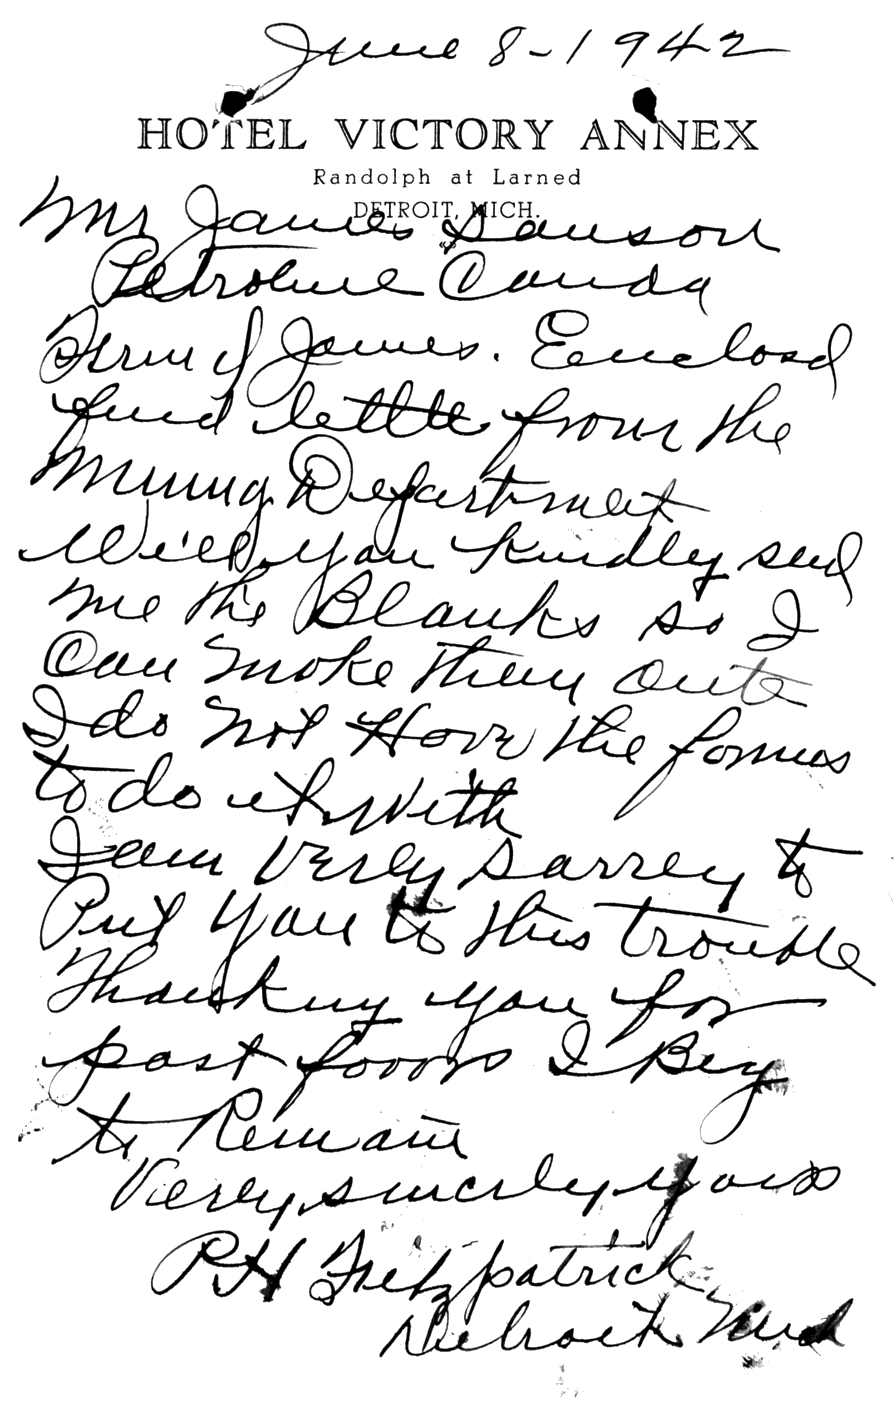 June 8-1942
HOTEL VICTORY ANNEX
Randolph at Larned
DETROIT, MICH.
Mr James Sanson
Petroline Canda
Frend James. Eenclosd
find lettle from the
Mining Department
Will you kindly send
me the Blanks so I
Can make them oute
I do not Have the formes
to do it with
I am verey sarrey to
Put you to this trouble
Thanking you for
past favors I Beg
to Remain
Verey sincrley yours
PH Fitzpatrick
Detroit Mich